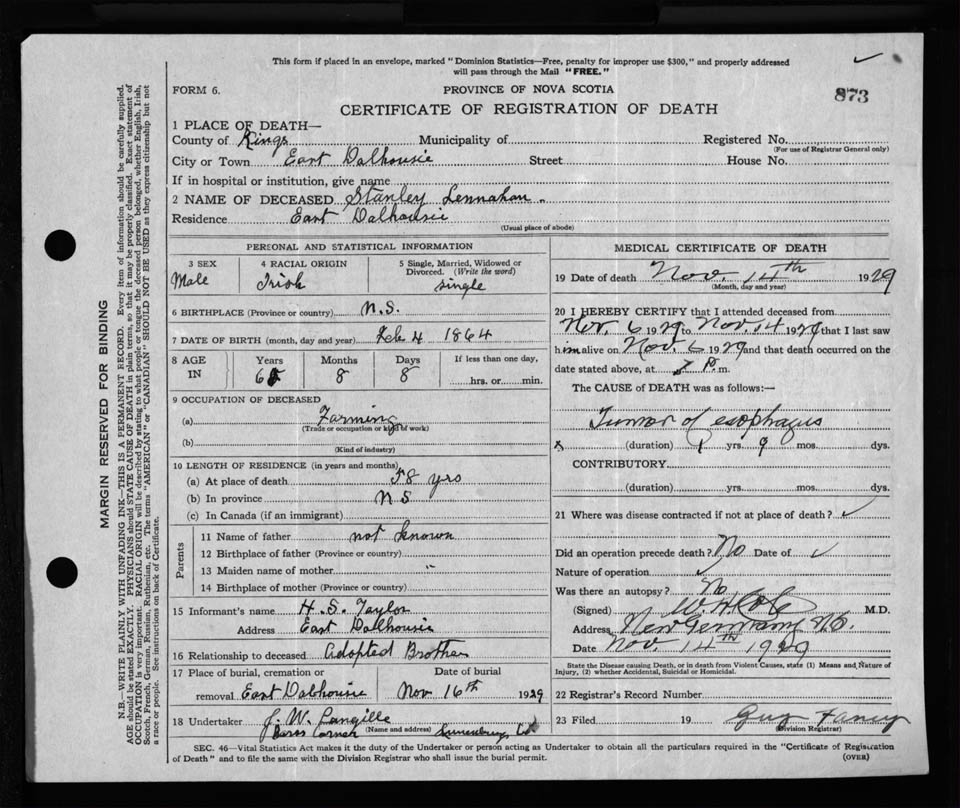 This form if placed in an envelope, marked "Dominion Statistics—Free, penalty for improper use $300," and properly addressed
will pass through the Mail "FREE."
FORM 6.
PROVINCE OF NOVA SCOTIA
873
CERTIFICATE OF REGISTRATION OF DEATH
1 PLACE OF DEATH—
County of Kings Municipality of Registered No.
(For use of Registrar General only)
City or Town East Dalhousie Street House No.
If in hospital or institution, give name
2 NAME OF DECEASED Stanley Lennahan
Residence East Dalhousie
(Usual place of abode)
PERSONAL AND STATISTICAL INFORMATION
3 SEX 4 RACIAL ORIGIN 5 Single, Married, Widowed or
Divorced. (Write the word)
Male Irish single
6 BIRTHPLACE (Province or country) N.S.
7 DATE OF BIRTH (month, day and year) Feb 4 1864
8 AGE Years Months Days If less than one day,
IN 65 8 8 hrs. or min.
9 OCCUPATION OF DECEASED
(a) Farming
(Trade or occupation or kind of work)
(b)
(Kind of industry)
10 LENGTH OF RESIDENCE (in years and months)
(a) At place of death 58 yrs
(b) In province N S
(c) In Canada (if an immigrant)
Parents
11 Name of father not known
12 Birthplace of father (Province or country)
13 Maiden name of mother "
14 Birthplace of mother (Province or country)
15 Informant's name H. S. Taylor
Address East Dalhousie
16 Relationship to deceased Adopted Brother
17 Place of burial, cremation or Date of burial
removal East Dalhousie Nov 16th 1929
18 Undertaker J. W. Langille
(Name and address)
Barss Corner Lunenburg Co
MEDICAL CERTIFICATE OF DEATH
19 Date of death Nov. 14th 1929
(Month, day and year)
20 I HEREBY CERTIFY that I attended deceased from
Nov. 6 1929 to Nov. 14 1929 that I last saw
him alive on Nov. 6 1929 and that death occurred on the
date stated above, at P.m.
The CAUSE of DEATH was as follows:—
Tumor of esophagus
(duration) 1 yrs. 9 mos. dys.
CONTRIBUTORY
(duration) yrs. mos. dys.
21 Where was disease contracted if not at place of death? ✓
Did an operation precede death? No Date of ✓
Nature of operation ✓
Was there an autopsy? No
(Signed) W. H. Cole M.D.
Address New Germany N.S.
Date Nov. 14TH 1929
State the Disease causing Death, or in death from Violent Causes, state (1) Means and Nature of
Injury, (2) whether Accidental, Suicidal or Homicidal.
22 Registrar's Record Number
23 Filed 19 Guy
(Division Registrar)
SEC. 46—Vital Statistics Act makes it the duty of the Undertaker or person acting as Undertaker to obtain all the particulars required in the "Certificate of Registration
of Death" and to file the same with the Division Registrar who shall issue the burial permit.
(OVER)
MARGIN RESERVED FOR BINDING
N.B.—WRITE PLAINLY WITH UNFADING INK—THIS IS A PERMANENT RECORD. Every item of information should be carefully supplied.
AGE should be stated EXACTLY. PHYSICIANS should STATE CAUSE OF DEATH in plain terms, so that it may be properly classified. Exact statement of
OCCUPATION is very important. RACIAL ORIGIN will be described by stating to what people or tongue the deceased person belonged, whether English, Irish,
Scotch, French, German, Russian, Ruthenian, etc. The terms "AMERICAN" or "CANADIAN" SHOULD NOT BE USED as they express citizenship but not
a race or people. See instructions on back of Certificate.